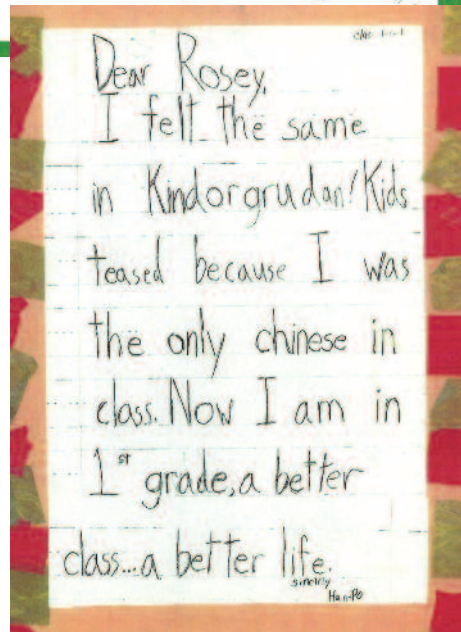 Dear Rosey,
I felt the same
in Kindorgrudan! Kids
teased because I was
the only chinese in
class. Now I am in
1st grade, a better
class...a better life.
sincirly
Han-Po